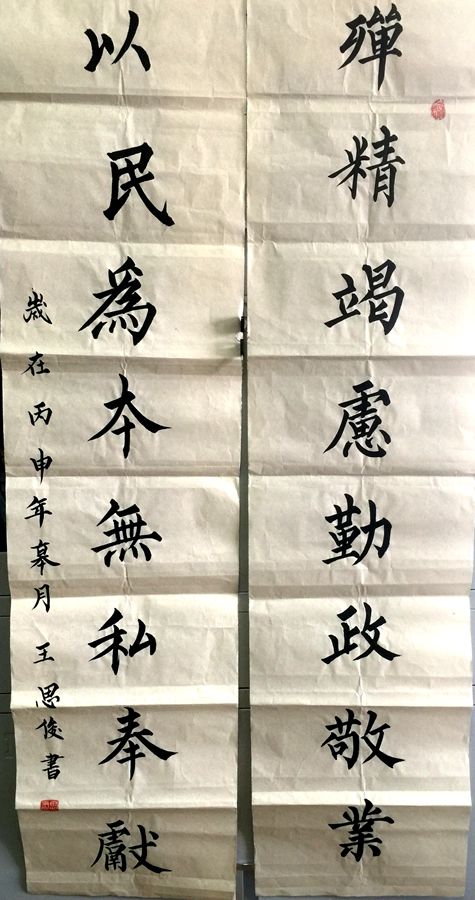 殫精竭慮勤政敬業
以民為本無私奉獻
歲在丙申年皋月 王思俊書